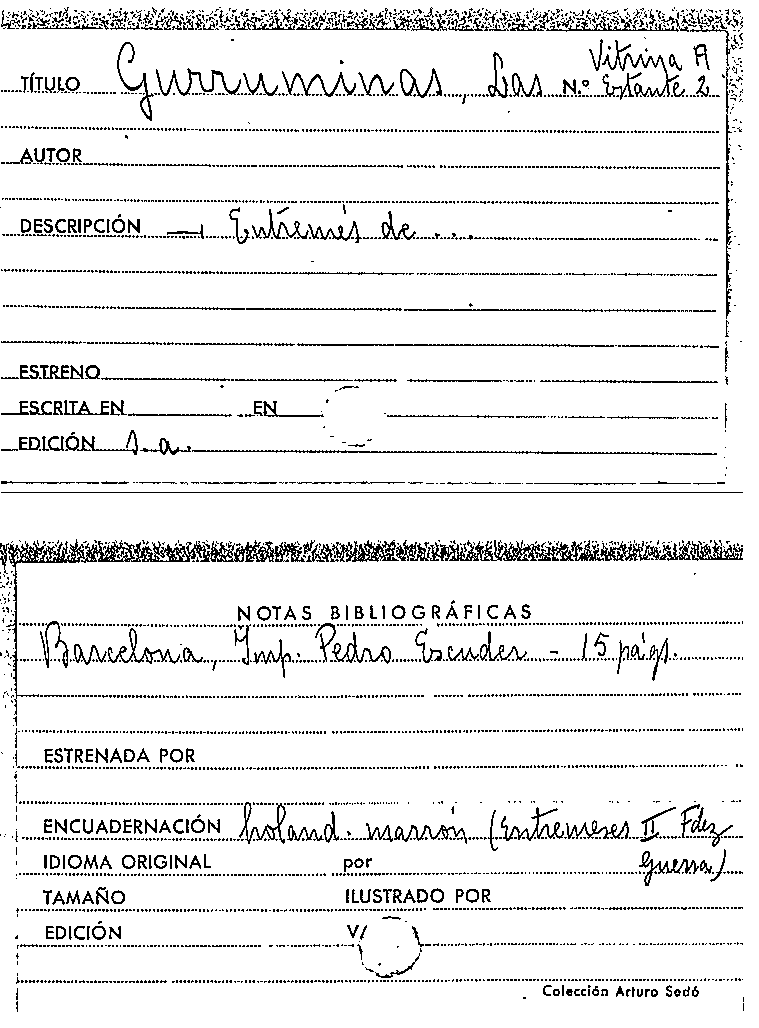 Vitrina A
TÍTULO Gurruminas, Las N.º Estante 2
AUTOR
DESCRIPCIÓN — Entremés de ...
ESTRENO
ESCRITA EN EN
EDICIÓN s.a.
NOTAS BIBLIOGRÁFICAS
Barcelona, Imp. Pedro Escuder - 15 págs.
ESTRENADA POR
ENCUADERNACIÓN holand. marrón (Entremeses II Fdez
IDIOMA ORIGINAL por Guerra)
TAMAÑO ILUSTRADO POR
EDICIÓN V/
Colección Arturo Sedó